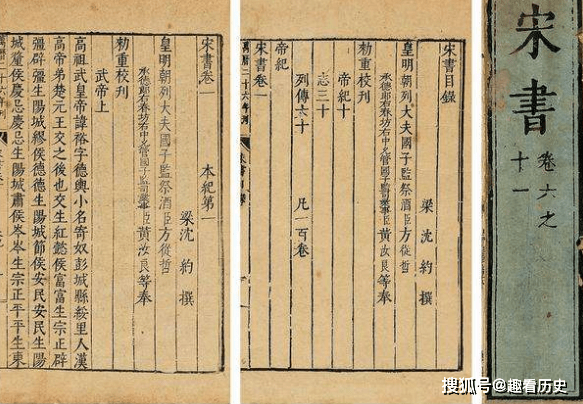 宋書
卷六之
十一
宋書目錄
梁沈約撰
皇明朝列大夫國子監祭酒臣方從哲
承德郎右春坊右中允管國子監司業事臣黃汝良等奉
勑重校刊
帝紀十
志三十
列傳六十 凡一百卷
帝紀
宋書卷一
萬曆二十六年刊
宋書卷一 本紀第一
梁沈約撰
皇明朝列大夫國子監祭酒臣方從哲
承德郎右春坊右中允管國子監司業事臣黃汝良等奉
勑重校刊
武帝上
高祖武皇帝諱裕字德輿小名寄奴彭城縣綏里人漢
高帝弟楚元王交之後也交生紅懿侯富富生宗正辟
彊辟彊生陽城繆侯德德生陽城節侯安民安民生陽
城釐侯慶忌慶忌生陽城肅侯岑岑生宗正平平生東
萬曆二十六年刊
搜狐号@趣看历史